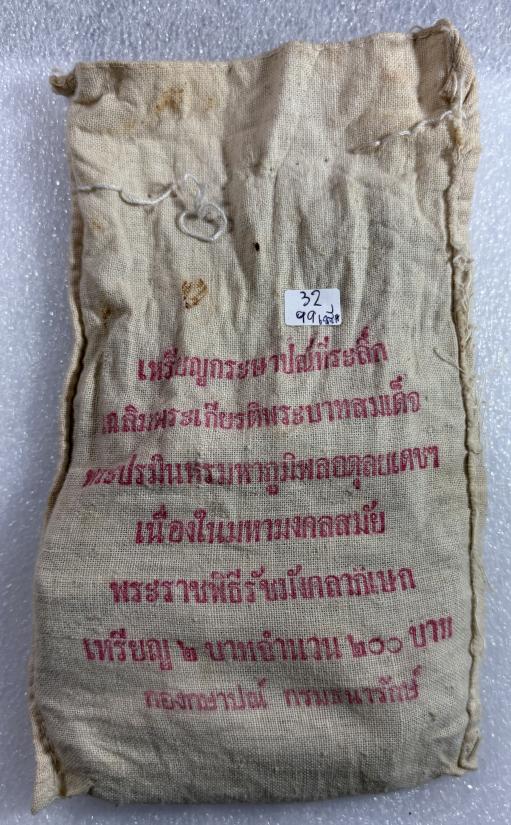 32
99 เหรียญ
เหรียญกระษาปณ์ที่ระลึก
เฉลิมพระเกียรติพระบาทสมเด็จ
พระปรมินทรมหาภูมิพลอดุลยเดชฯ
เนื่องในมหามงคลสมัย
พระราชพิธีรัชมังคลาภิเษก
เหรียญ ๒ บาทจำนวน ๒๐๐ บาท
กองกษาปณ์ กรมธนารักษ์